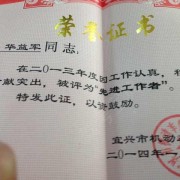 荣誉证书
华益军 同志：
在二〇一三年度因工作认真，
献突出，被评为“先进工作者”。
特发此证，以资鼓励。
宜兴市机动
二〇一四年一